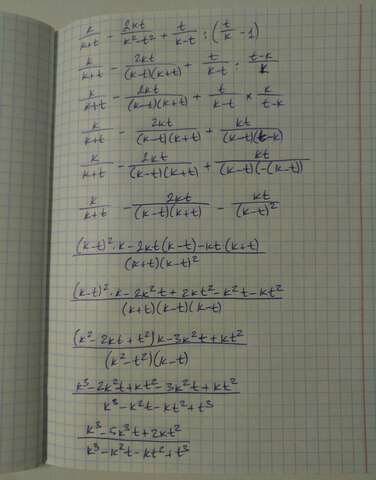 k/(k+t) - 2kt/(k²-t²) + t/(k-t) : (t/k - 1)
k/(k+t) - 2kt/((k-t)(k+t)) + t/(k-t) : (t-k)/k
k/(k+t) - 2kt/((k-t)(k+t)) + t/(k-t) × k/(t-k)
k/(k+t) - 2kt/((k-t)(k+t)) + kt/((k-t)(t-k))
k/(k+t) - 2kt/((k-t)(k+t)) + kt/((k-t)(-(k-t)))
k/(k+t) - 2kt/((k-t)(k+t)) - kt/(k-t)²
((k-t)²·k-2kt(k-t)-kt(k+t))/((k+t)(k-t)²)
((k-t)²·k-2k²t+2kt²-k²t-kt²)/((k+t)(k-t)(k-t))
((k²-2kt+t²)k-3k²t+kt²)/((k²-t²)(k-t))
(k³-2k²t+kt²-3k²t+kt²)/(k³-k²t-kt²+t³)
(k³-5k³t+2kt²)/(k³-k²t-kt²+t³)